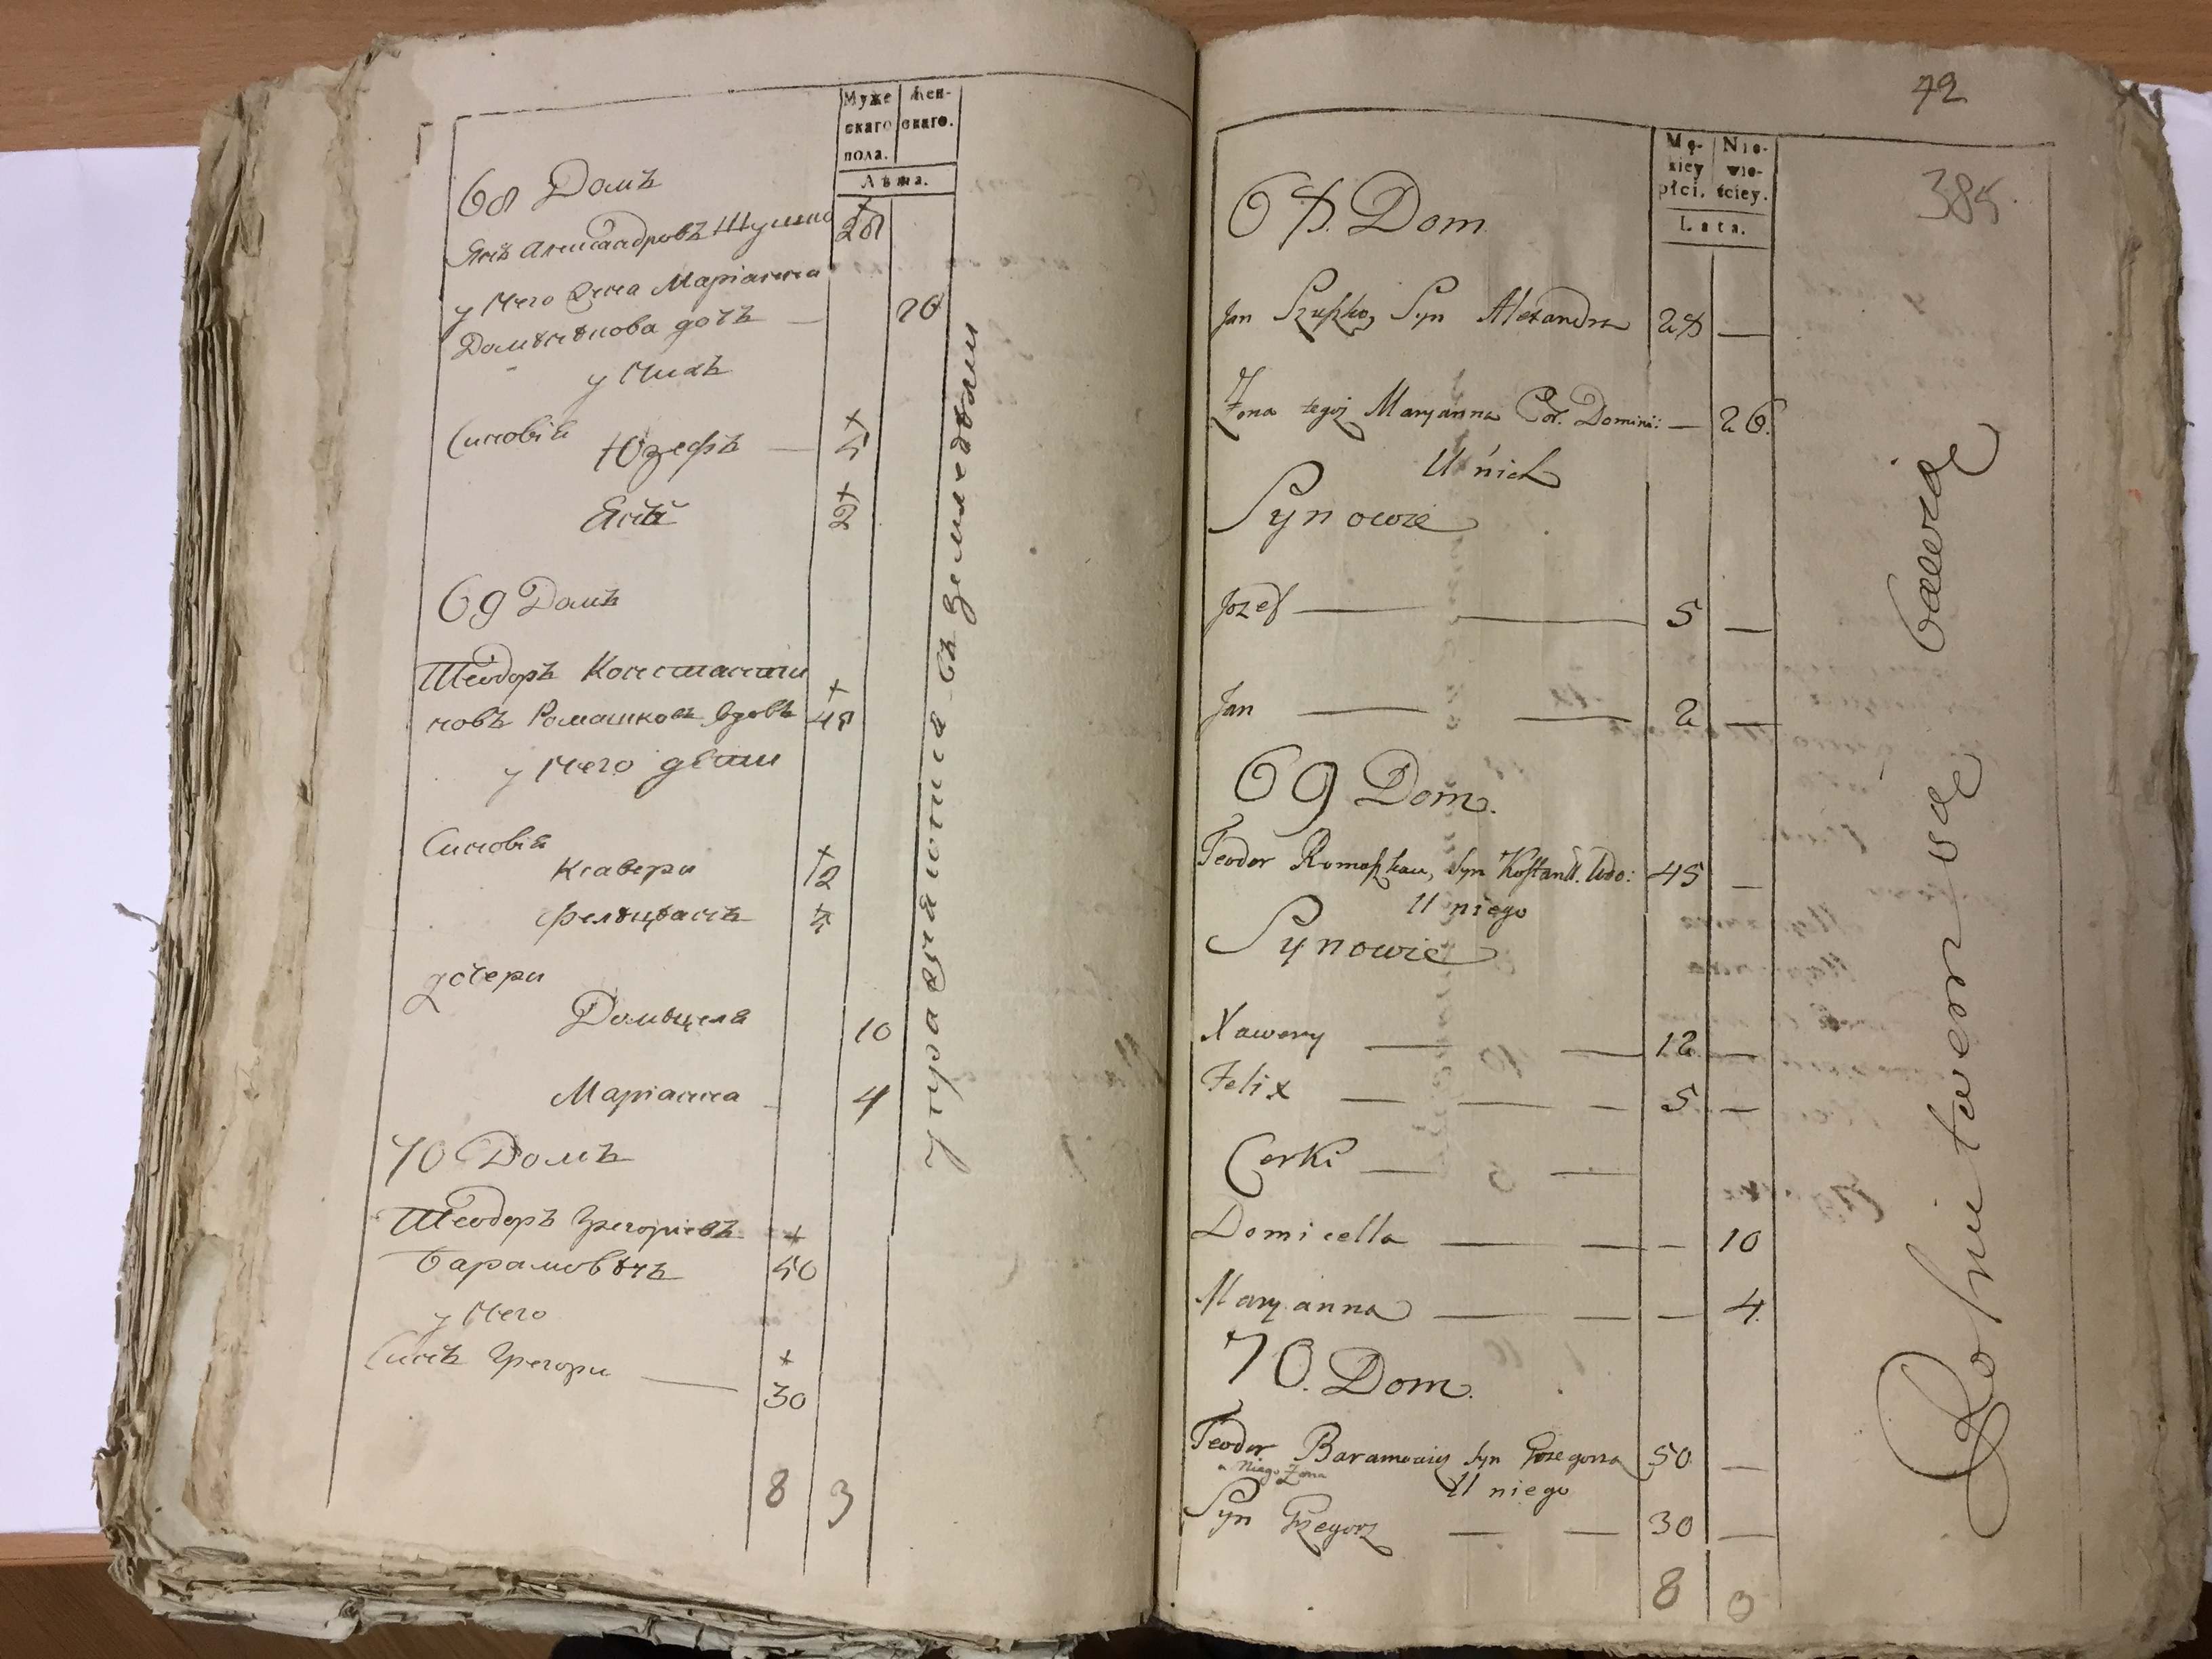 Муже
скаго
пола.
Жен-
скаго.
Лѣта.
68 Домъ
Янъ Александровъ Шушко 28
у Него Жена Маріанна
Доминикова дочь — 26
у Нихъ
Синовія Юзефъ — 5
Янъ 2
69 Домъ
Теодоръ Константи
новъ Ромашковъ вдовъ 48
у Него дѣти
Синовія
Ксавери 12
Фелиціанъ 5
дочери
Домицеля 10
Маріанна — 4
70 Домъ
Теодоръ Грегоріевъ
Барамовичъ 50
у Него
Синъ Грегори — 30
8 3
упражняютися въ земледѣлии
42
385
Mę-
kiey
płci.
Nie-
wie-
ściey.
Lata.
68. Dom
Jan Szuszko, Syn Alexandra 28 —
Żona tegoż Maryanna Cór. Domini: — 26.
U nich
Synowie
Jozef — — 5 —
Jan — — 2 —
69 Dom.
Teodor Romaszkow, Syn Kostant. Wdo: 48 —
U niego
Synowie
Xawery — — 12 —
Felix — — — 5 —
Corki — —
Domicella — — — 10
Maryanna — — — 4
70. Dom.
Teodor Baramowicz Syn Grzegorza 50 —
u Niego Żona
U niego
Syn Grzegorz — — 30 —
8 3
Rolnictwem się bawią